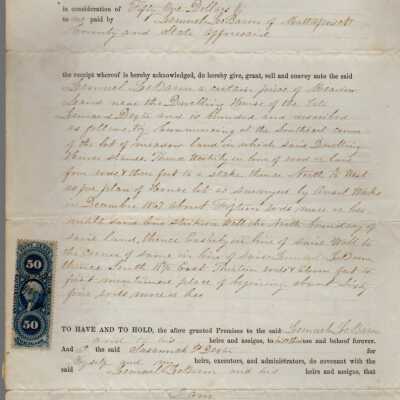 in consideration of Fifty One Dollars
to me paid by Lemuel LeBaron of Mattapoisett
County and State afforesaid
the receipt whereof is hereby acknowledged, do hereby give, grant, sell and convey unto the said
Lemuel LeBaron a certain piece of Meadow
Land near the Dwelling House of the late
Leonard Dexter and is bounded and described
as follows, to Commencing at the Southeast corner
of the lot of meadow land in which said Dwelling
House stands Thence Westerly in line of
four rods & three feet to a stake thence North West
as per plan of lot as surveyed by Ansel Weeks
in December 1867 about Fifteen rods more or less
until said line strikes a Wall the North boundary of
said land, thence Easterly in line of said Wall to
the corner of same in line of said Lemuel LeBaron
thence South East Thirteen rods & eleven feet to
first mentioned place of beginning about sixty
four rods more or less
50
50
TO HAVE AND TO HOLD, the afore granted Premises to the said Lemuel LeBaron
and to his heirs and assigns, to his use and behoof forever.
And I the said Susannah P Dexter for
Myself and my heirs, executors, and administrators, do covenant with the
said Lemuel LeBaron and his heirs and assigns, that
I am